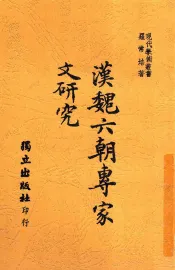 現代學術叢書
羅常培著
漢魏六朝專家
文研究
獨立出版社
印行